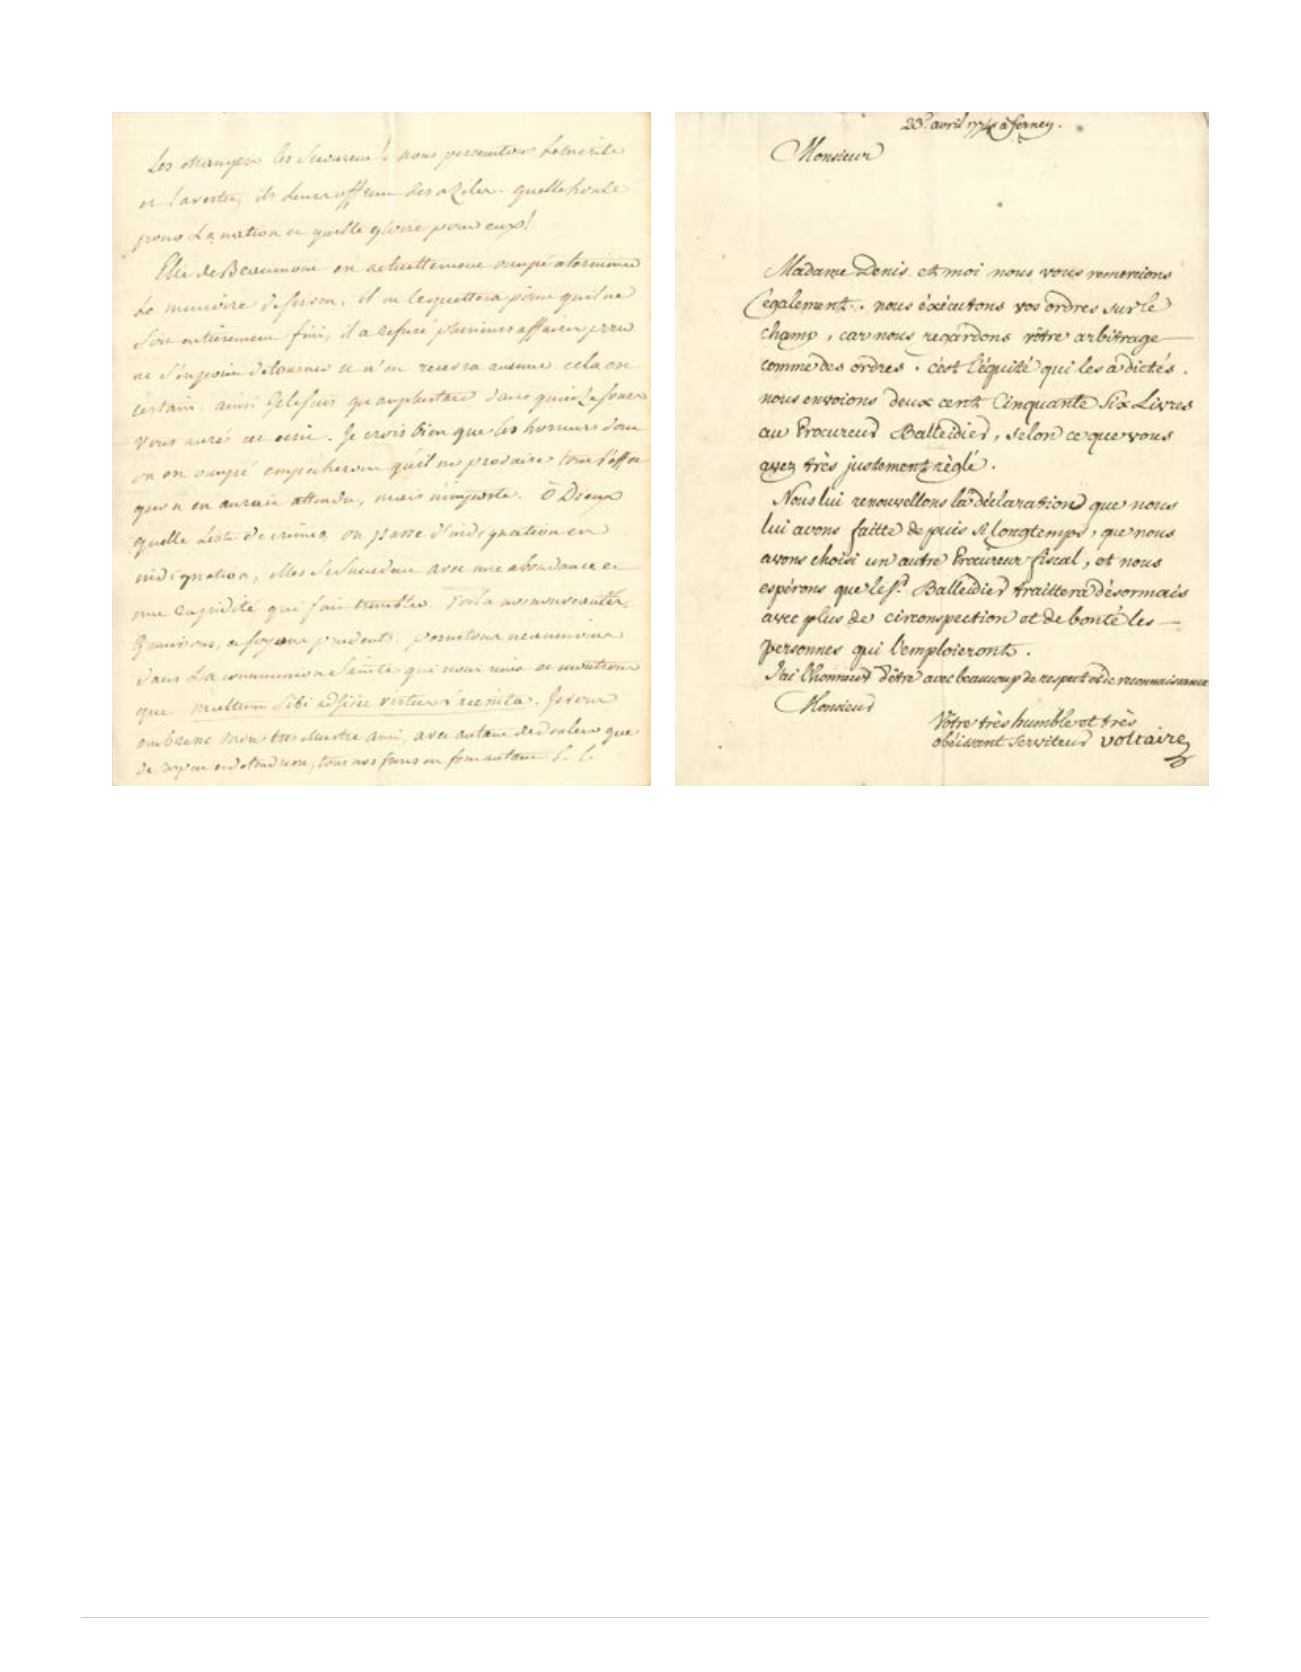 et
pour la nation et quelle gloire pour eux!
Elie de Beaumont est actuellement occupé a terminer
Le memoire de Sirven. il ne le quittera point qu'il ne
Soit entièrement fini, il a refusé plusieurs affaires pour
ne S'en point détourner et n'en recevra aucune cela est
certain. ainsi
Vous aurés. Je crois bien que les horreurs dont
on est occupé empêcheront qu'il ne produise tout l'effet
qu'on en aurait attendu, mais n'importe. Ô Dieux
quelle Liste de crimes, on passe d'indignation en
indignation, elles se succedent avec une abondance et
une rapidité qui fait trembler.
Gemissons, et soyons prudents.
dans La communion Sainte qui nous unit et montrons
que multum sibi adjicit virtus lacessita. Je vous
embrasse mon tres illustre ami, avec autant de douleur que
de
23e. avril 177 à ferney.
Monsieur
Madame Denis et moi nous vous remercions
également. nous éxécutons vos ordres sur le
champ, car nous regardons vôtre arbitrage
comme des ordres. c'est l'équité qui les a dictés.
nous envoions deux cent Cinquante Six Livres
au Procureur Balleidier, selon ce que vous
avez très justement règlé.
Nous lui renouvellons la déclaration que nous
lui avons faitte depuis si longtemps, que nous
avons choisi un autre Procureur fiscal, et nous
espérons que le Sr. Balleidier traittera désormais
avec plus de circonspection et de bonté les
personnes qui l'emploieront.
J'ai l'honneur d'être avec beaucoup de respect et de reconnaissance
Monsieur
Vôtre très humble et très
obéissant serviteur voltaire